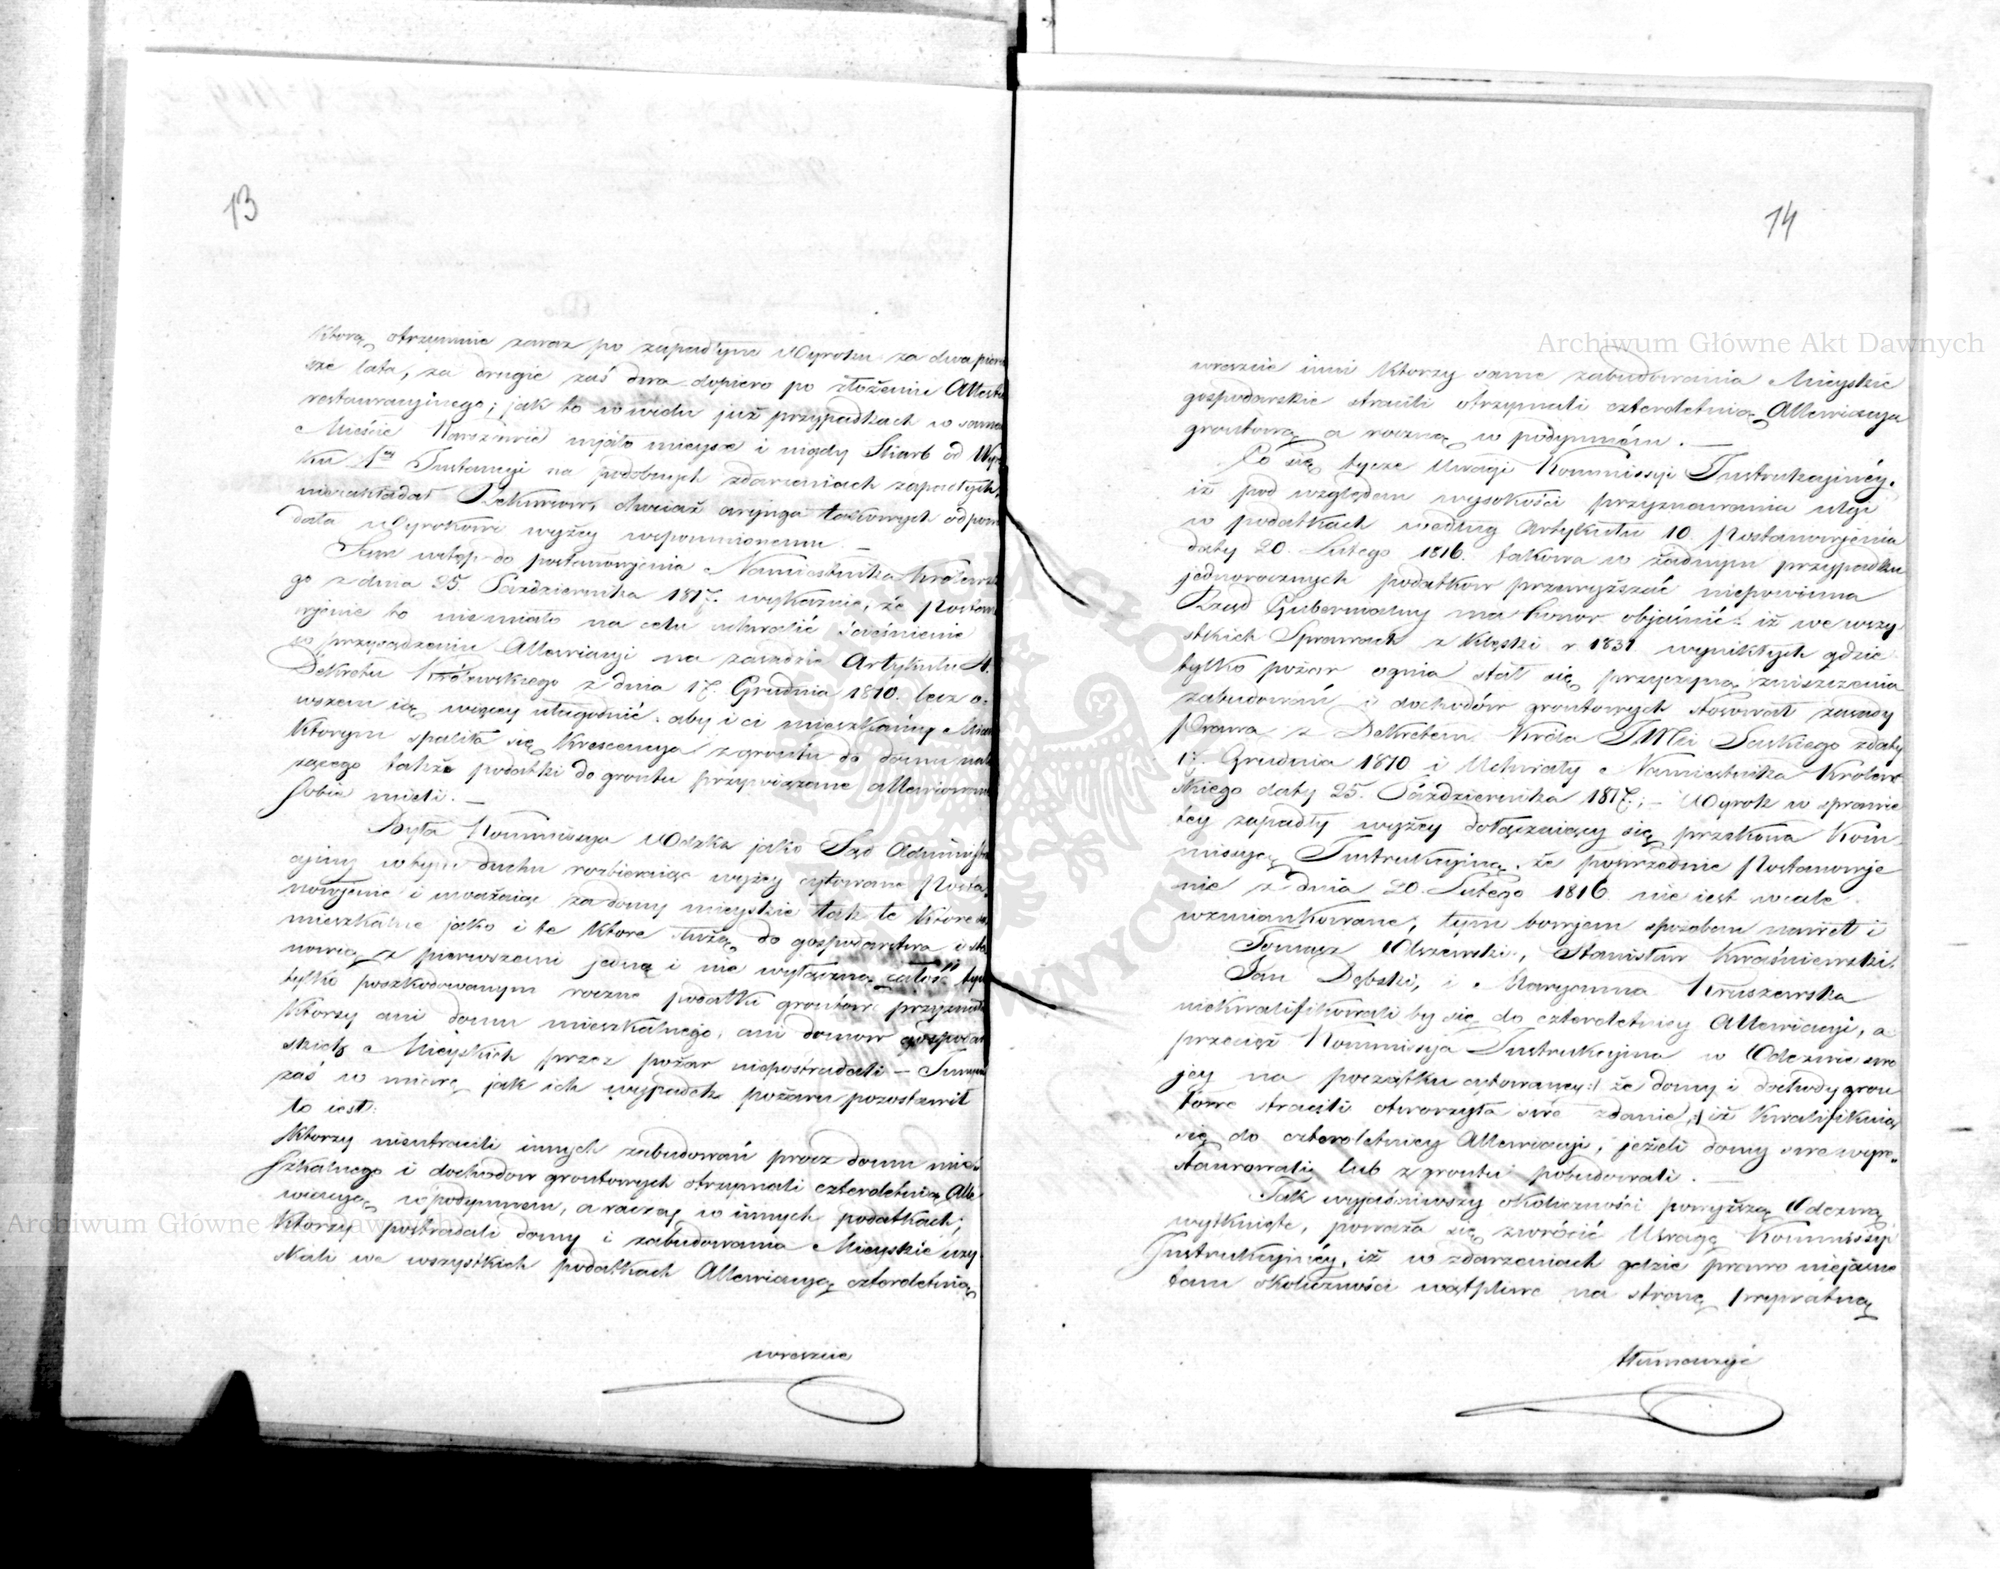 13
którą otrzymuje zaraz po zapadłym Wyroku za dwa pierw
sze lata, za drugie zaś dwa dopiero po złożeniu Attestu
restauracyjnego; jak to w wielu już przypadkach w samem
Mieście miało mieysce i nigdy Skarb od Wyro
ku 1ey Instancyi na podobnych zdarzeniach zapadłych,
niezakładał Rekursów, chociaż takowych odpowia
dała Wyrokowi wyżey wspomnionemu. —
Sam wstęp do postanowienia Namiestnika Królewskie
go z dnia 25. Października 1817. wykazuie, że Postano
wienie to niemiało na celu ścieśnienie
w przyrządzeniu Allewiacyi na zasadzie Artykułu 4.
Dekretu Królewskiego z dnia 17. Grudnia 1810. lecz o-
wszem ią więcey ułagodnić, aby i ci mieszkańcy Miast
którym spaliła się Krescencya z gruntu do domu nale
żącego także podatki do gruntu przywiązane allewiowane
sobie mieli. —
Była Kommissya Wdzka jako Sąd Administra
cyjny w tym duchu rozbieraiąc wyżey cytowane Posta-
nowienie i uważaiąc za domy mieyskie tak te które są
mieszkalne jako i te które służą do gospodarstwa i sta
nowią z pierwszemi jedną i nie wyłączną całość tym
tylko poszkodowanym roczne podatki gruntowe przyznała
którzy ani domu mieszkalnego, ani domow gospodar
skich Mieyskich przez pożar niepostradali — Innym
zaś w miarę jak ich wypadek pożaru pozostawił
to iest:
Którzy nieutracili innych zabudowań prócz domu mie-
szkalnego i dochodow gruntowych otrzymali czteroletnią Alle
wiacyą w podymnem, a roczną w innych podatkach;
Którzy postradali domy i zabudowania Mieyskie uzy
skali we wszystkich podatkach Allewiacyą czteroletnią,
wreszcie
14
wreszcie inni którzy same zabudowania Mieyskie
gospodarskie stracili otrzymali czteroletnią Allewiacyą
gruntową a roczną w podymném. —
Co się tycze Uwagi Kommissyi Instrukcyjnéy.
iż pod względem wysokości przyznawania ulgi
w podatkach według Artykułu 10. Postanowienia
daty 20. Lutego 1816. takowa w żadnym przypadku
jednorocznych podatków przewyższać niepowinna
Rząd Gubernialny ma honor objaśnić: iż we wszy
stkich Sprawach z Klęski r. 1831 wynikłych gdzie
tylko pożar ognia stał się przyczyną zniszczenia
zabudowań i dochodów gruntowych stosował zasady
Prawa z Dekretem Króla JMci Saskiego z daty
17. Grudnia 1810 i Uchwały Namiestnika Królew
skiego daty 25. Października 1817.; — Wyrok w sprawie
tey zapadły wyżey dołączaiący się przekona Kom-
missyą Instrukcyjną, że poprzednie Postanowie
nie z dnia 20. Lutego 1816 nie iest wcale
wzmiankowane, tym bowiem sposobem nawet i
Tomasz Olszewski, Stanisław Kwaśniewski
Jan Dębski, i Maryanna Kruszewska
niekwalifikowali by się do czteroletniey Allewiacyi, a
przecież Kommissya Instrukcyjna w Odezwie swo
jey na początku cytowaney :/ że domy i dochody grun
towe stracili otworzyła swe zdanie, :/ iż kwalifikuią
się do czteroletniey Allewiacyi, jeżeli domy swe wyre-
staurowali lub z gruntu pobudowali. —
Tak wyjaśniwszy okoliczności powyższą Odezwą
wytknięte, poważa się zwrócić Uwagę Kommissyi
Instrukcyjnéy, iż w zdarzeniach gdzie prawo niejasne
tam okoliczności wątpliwe na stronę prywatną
tłumaczyć
Archiwum Główne Akt Dawnych
Archiwum Główne Akt Dawnych